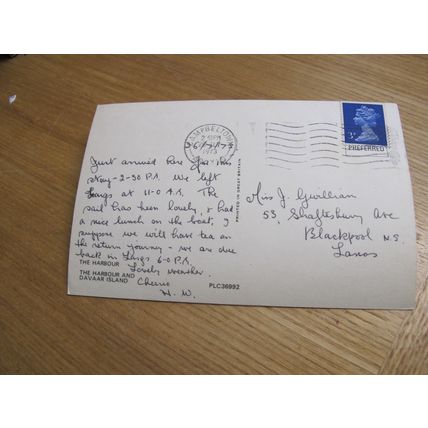 CAMPBELTOWN
1973
3P
PREFERRED
PRINTED IN GREAT BRITAIN
Just arrived here for
Stay - 2-30 P.M. We left
Largs at 11-0 A.M. The
sail has been lovely, & had
a nice lunch on the boat, I
suppose we will have tea on
the return journey - we are due
back in Largs 6-0 P.M.
Lovely weather.
Cheerio
H. W.
Miss J. Gwillian
53, Shaftesbury Ave
Blackpool N.S.
Lancs
THE HARBOUR
THE HARBOUR AND
DAVAAR ISLAND
PLC36992